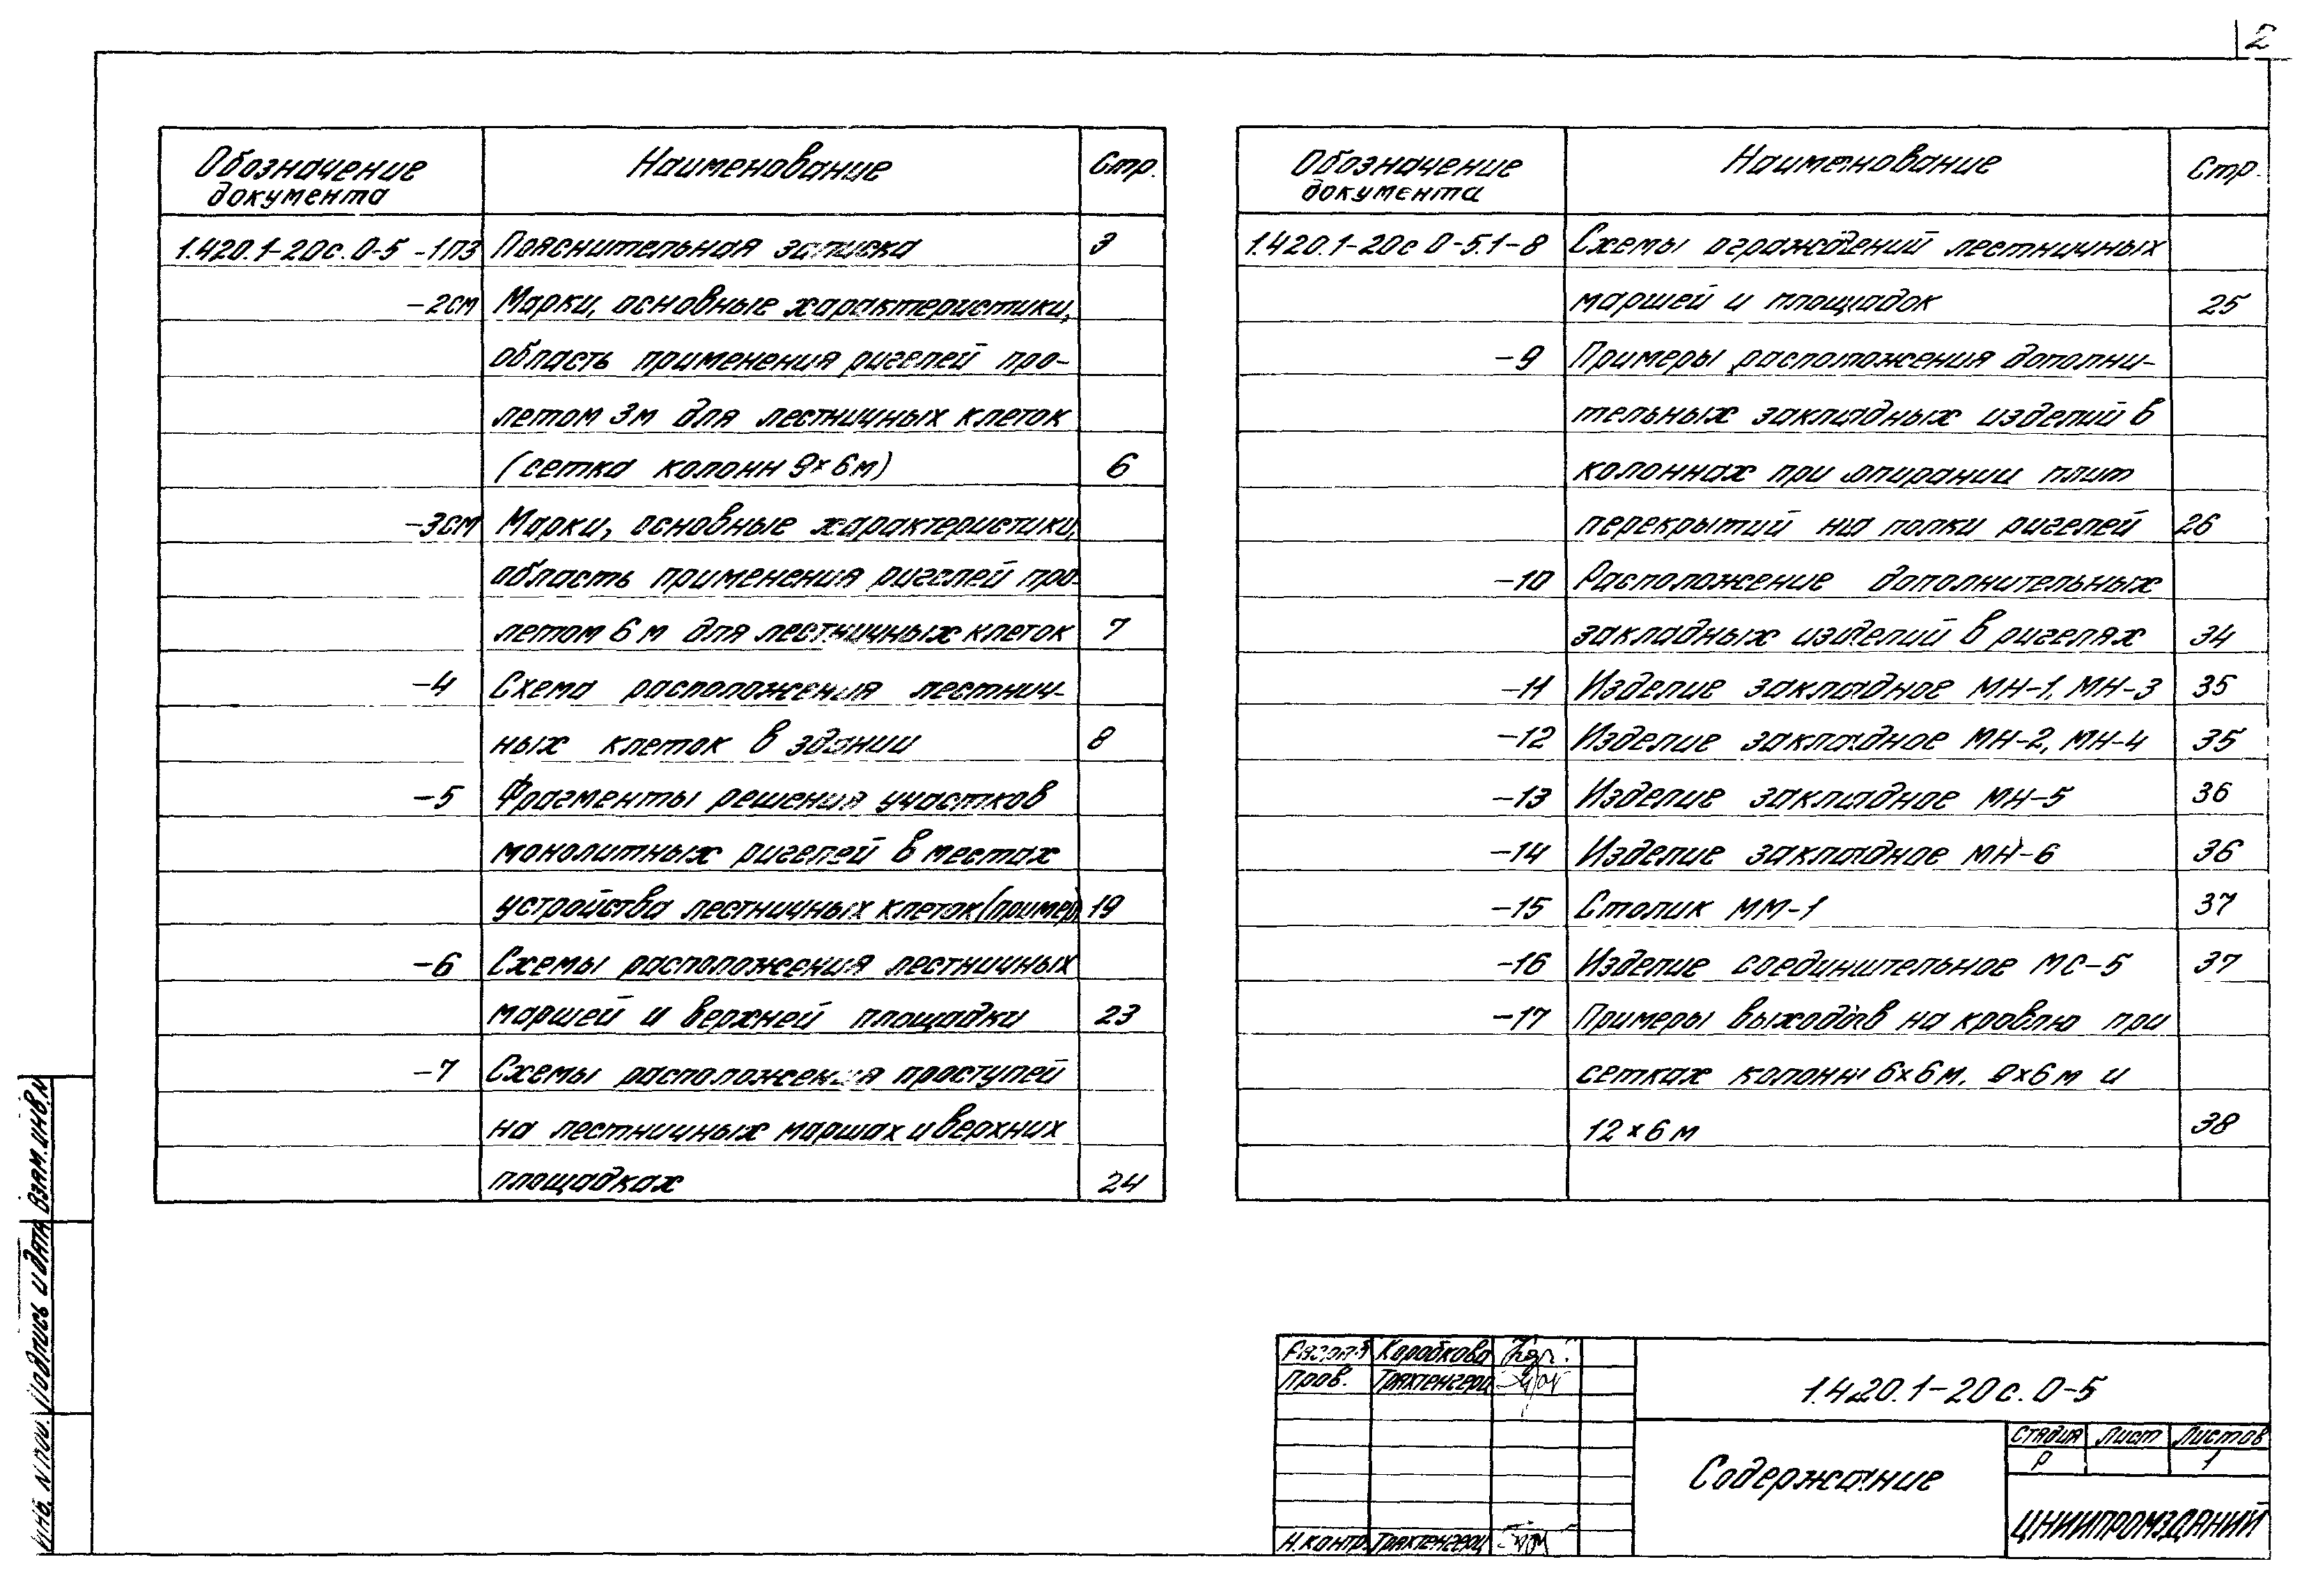 2
Обозначение документа Наименование Стр.
1.420.1-20с.0-5 -1ПЗ Пояснительная записка 3
-2см Марки, основные характеристики,
область применения ригелей про-
летом 3м для лестничных клеток
(сетка колонн 9×6м) 6
-3см Марки, основные характеристики,
область применения ригелей про-
летом 6м для лестничных клеток 7
-4 Схема расположения лестнич-
ных клеток в здании 8
-5 Фрагменты решения участков
монолитных ригелей в местах
устройства лестничных клеток (пример) 19
-6 Схемы расположения лестничных
маршей и верхней площадки 23
-7 Схемы расположения проступей
на лестничных маршах и верхних
площадках 24
Обозначение документа Наименование Стр.
1.420.1-20с 0-5.1-8 Схемы ограждений лестничных
маршей и площадок 25
-9 Примеры расположения дополни-
тельных закладных изделий в
колоннах при опирании плит
перекрытий на полки ригелей 26
-10 Расположение дополнительных
закладных изделий в ригелях 34
-11 Изделие закладное МН-1, МН-3 35
-12 Изделие закладное МН-2, МН-4 35
-13 Изделие закладное МН-5 36
-14 Изделие закладное МН-6 36
-15 Столик ММ-1 37
-16 Изделие соединительное МС-5 37
-17 Примеры выходов на кровлю при
сетках колонн 6×6м, 9×6м и
12×6м 38
Инв. N подл. Подпись и дата Взам. инв. N
Разраб Коробкова
Пров. Трахтенгерц
Н.контр. Трахтенгерц
1.420.1-20с.0-5
Содержание
Стадия Лист Листов
Р 1
ЦНИИПРОМЗДАНИЙ